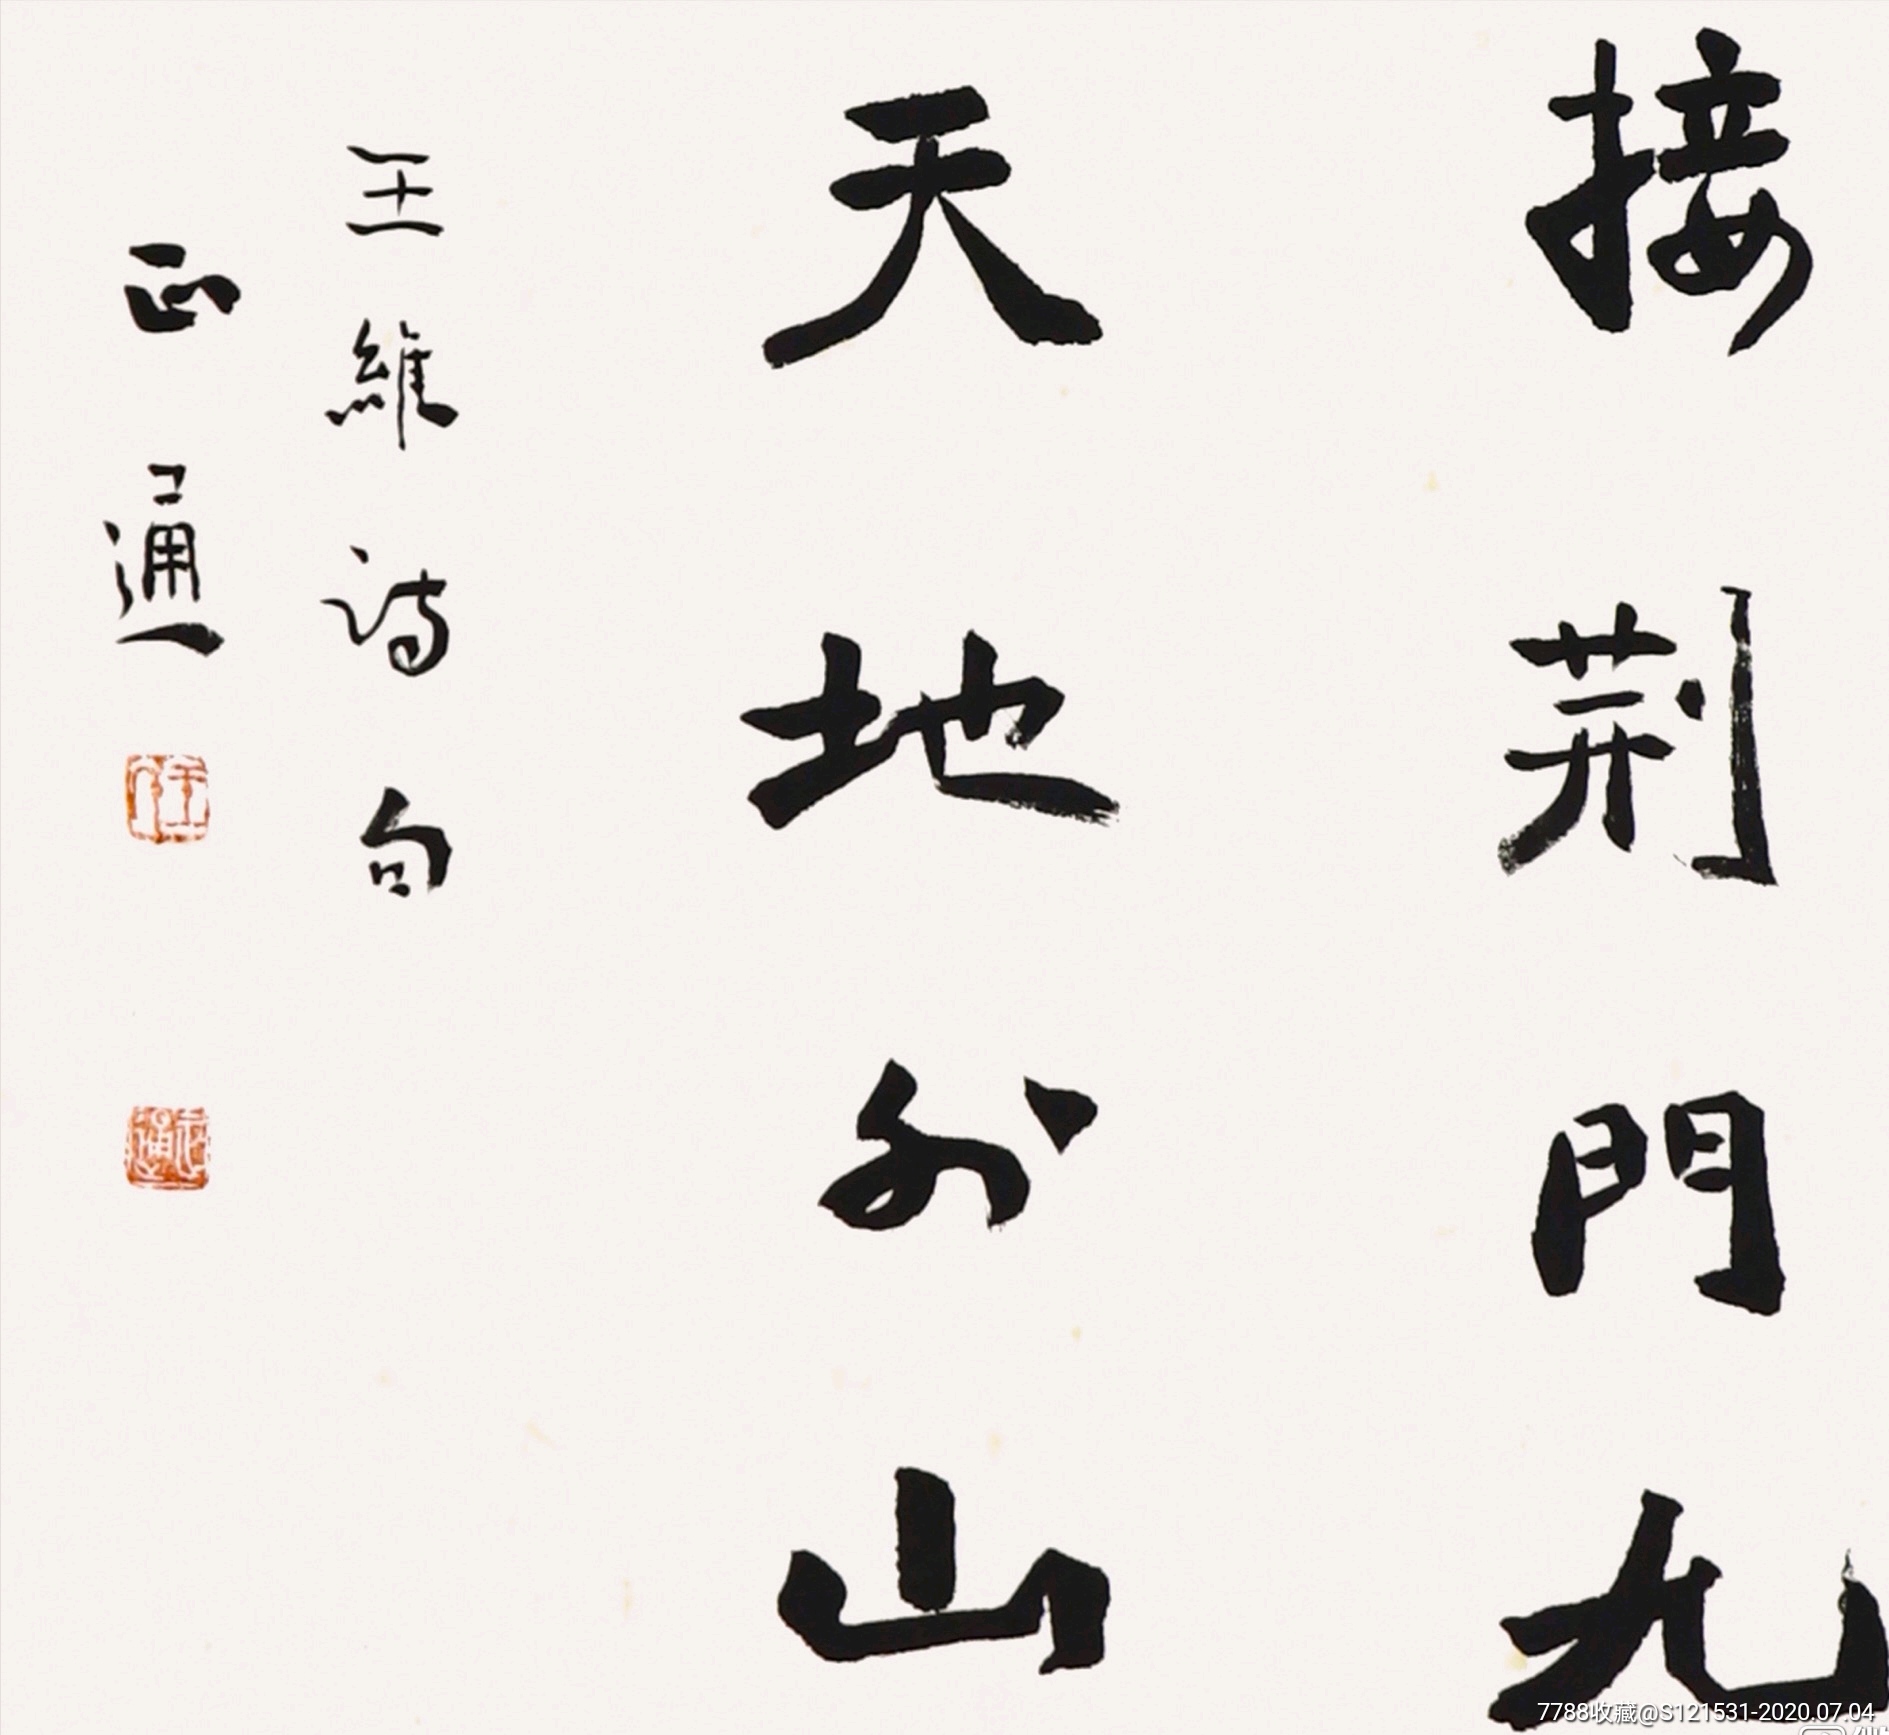 接荆門九
天地外山
王維詩句
正通
7788收藏@S121531-2020.07.04